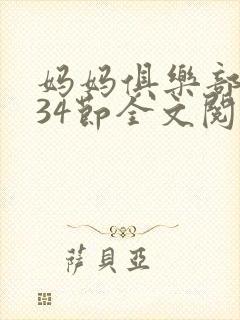 妈妈俱樂部
34節全文閱
萨貝亞